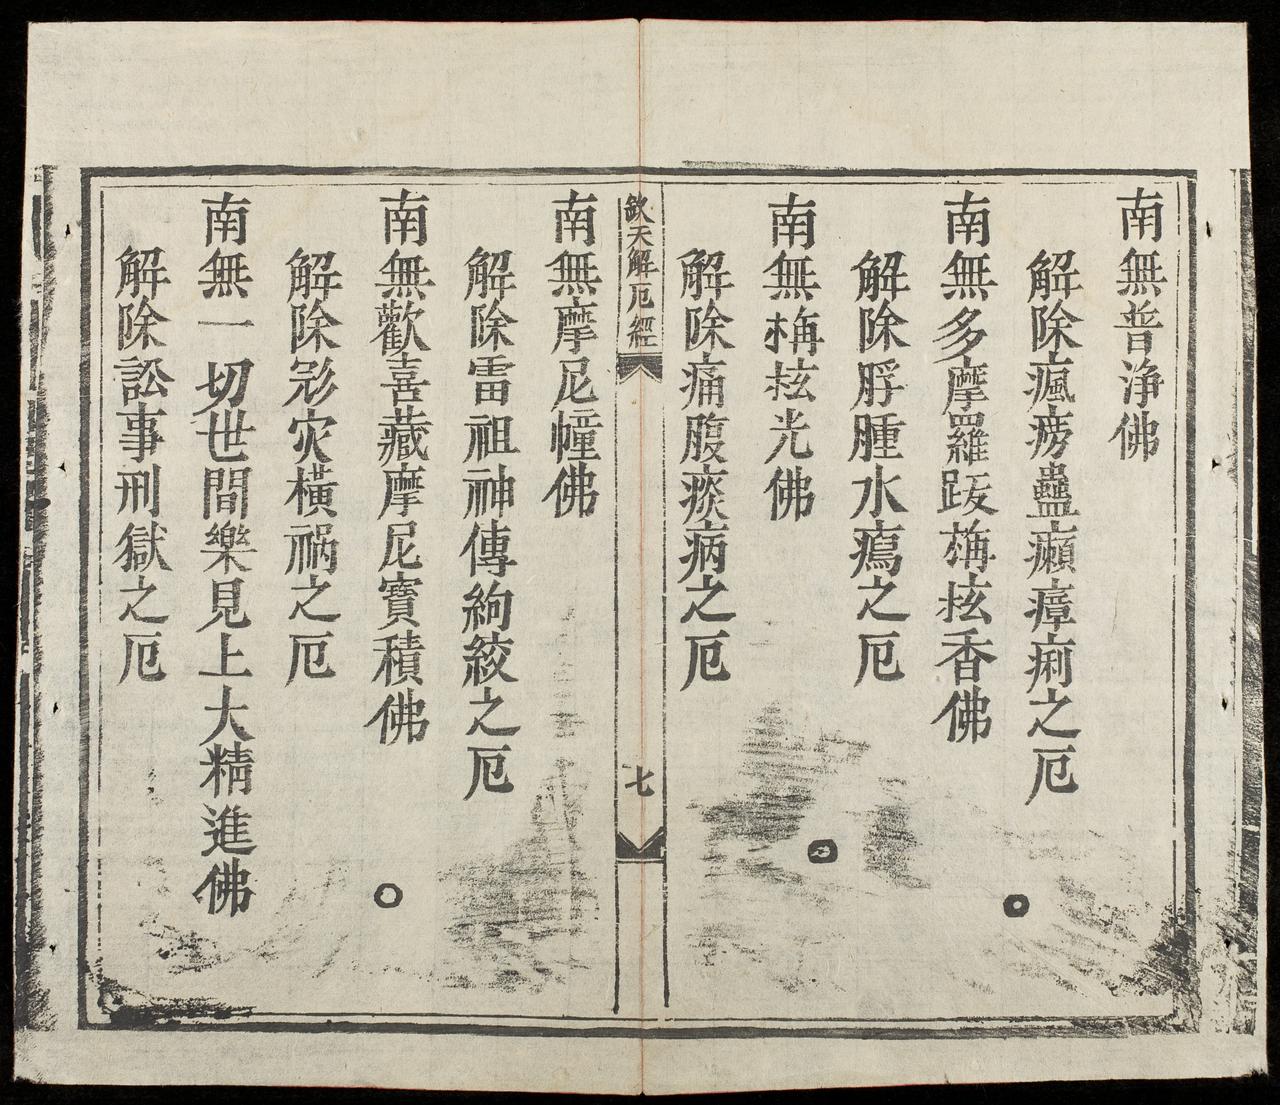 南無普淨佛
解除瘋癆蠱癩瘴痢之厄
南無多摩羅跋栴抎香佛
解除脬腫水瘑之厄
南無栴抎光佛
解除痛腹痰病之厄
欽天解厄經
七
南無摩尼幢佛
解除雷祖神傳絢絞之厄
南無歡喜藏摩尼寶積佛
解除灾橫禍之厄
南無一切世間樂見上大精進佛
解除訟事刑獄之厄